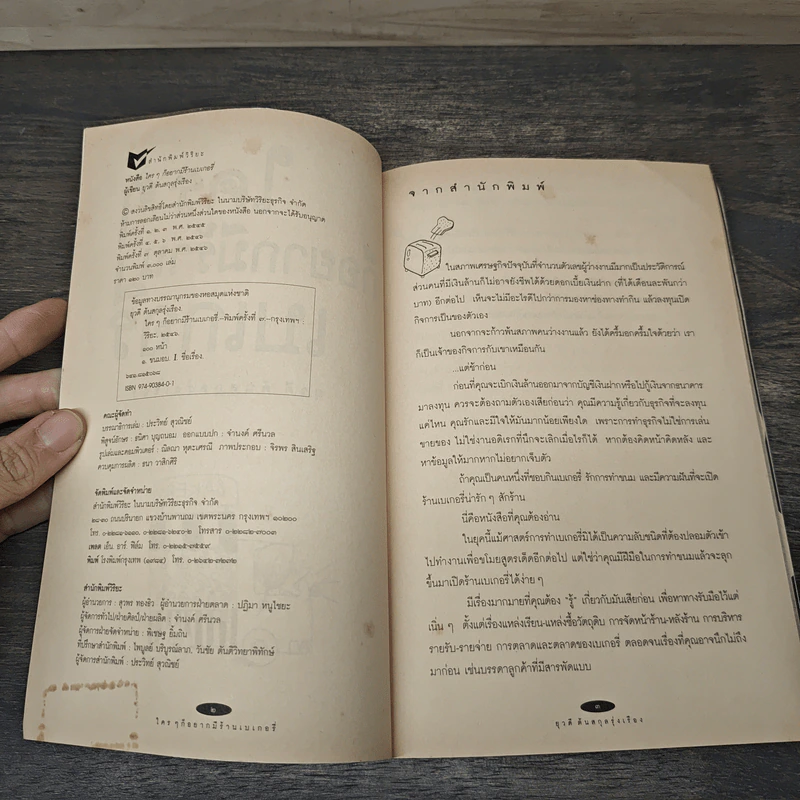 สำนักพิมพ์วิริยะ
หนังสือ ใคร ๆ ก็อยากมีร้านเบเกอรี่
ผู้เขียน ยุวดี ตันสกุลรุ่งเรือง
© สงวนลิขสิทธิ์โดยสำนักพิมพ์วิริยะ ในนามบริษัทวิริยะธุรกิจ จำกัด
ห้ามการลอกเลียนไม่ว่าส่วนหนึ่งส่วนใดของหนังสือ นอกจากจะได้รับอนุญาต
พิมพ์ครั้งที่ ๑, ๒, ๓ พ.ศ. ๒๕๔๕
พิมพ์ครั้งที่ ๔, ๕, ๖ พ.ศ. ๒๕๔๖
พิมพ์ครั้งที่ ๗ ตุลาคม พ.ศ. ๒๕๔๖
จำนวนพิมพ์ ๓,๐๐๐ เล่ม
ราคา ๑๒๐ บาท
ข้อมูลทางบรรณานุกรมของหอสมุดแห่งชาติ
ยุวดี ตันสกุลรุ่งเรือง.
ใคร ๆ ก็อยากมีร้านเบเกอรี่.--พิมพ์ครั้งที่ ๗.--กรุงเทพฯ :
วิริยะ, ๒๕๔๖.
หน้า
๑. ขนมอบ. I. ชื่อเรื่อง.
ISBN 974-90384-0-1
คณะผู้จัดทำ
บรรณาธิการเล่ม : ประวิทย์ สุวณิชย์
พิสูจน์อักษร : ธนิศา บุญถนอม ออกแบบปก : จำนงค์ ศรีนวล
รูปเล่มและคอมพิวเตอร์ : ณิลณา หุตะเศรณี ภาพประกอบ : จิรพร สินเสริฐ
ควบคุมการผลิต : ธนา วาสิกศิริ
จัดพิมพ์และจัดจำหน่าย
สำนักพิมพ์วิริยะ ในนามบริษัทวิริยะธุรกิจ จำกัด
ถนนปรินายก แขวงบ้านพานถม เขตพระนคร กรุงเทพฯ ๑๐๒๐๐
เพลต เอ็น. อาร์. ฟิล์ม
พิมพ์ โรงพิมพ์กรุงเทพ (๑๙๘๔)
สำนักพิมพ์วิริยะ
ผู้อำนวยการ : สุวพร ทองธิว ผู้อำนวยการฝ่ายตลาด : ปฏิมา หนูไชยะ
ผู้จัดการทั่วไป/ฝ่ายศิลป์/ฝ่ายผลิต : จำนงค์ ศรีนวล
ผู้จัดการฝ่ายจัดจำหน่าย : พิเชษฐ ยิ้มถิน
ที่ปรึกษาสำนักพิมพ์ : ไพบูลย์ บริบูรณ์ลาภ, วันชัย ตันติวิทยาพิทักษ์
ผู้จัดการสำนักพิมพ์ : ประวิทย์ สุวณิชย์
๒
ใคร ๆ ก็อยากมีร้านเบเกอรี่
จากสำนักพิมพ์
ในสภาพเศรษฐกิจปัจจุบันที่จำนวนตัวเลขผู้ว่างงานมีมากเป็นประวัติการณ์
ส่วนคนที่มีเงินล้านก็ไม่อาจยังชีพได้ด้วยดอกเบี้ยเงินฝาก (ที่ได้เดือนละพันกว่า
บาท) อีกต่อไป เห็นจะไม่มีอะไรดีไปกว่าการมองหาช่องทางทำกิน แล้วลงทุนเปิด
กิจการเป็นของตัวเอง
นอกจากจะก้าวพ้นสภาพคนว่างงานแล้ว ยังได้ครึ้มอกครึ้มใจด้วยว่า เรา
ก็เป็นเจ้าของกิจการกับเขาเหมือนกัน
...แต่ช้าก่อน
ก่อนที่คุณจะเบิกเงินล้านออกมาจากบัญชีเงินฝากหรือไปกู้เงินจากธนาคาร
มาลงทุน ควรจะต้องถามตัวเองเสียก่อนว่า คุณมีความรู้เกี่ยวกับธุรกิจที่จะลงทุน
แค่ไหน คุณรักและมีใจให้มันมากน้อยเพียงใด เพราะการทำธุรกิจไม่ใช่การเล่น
ขายของ ไม่ใช่งานอดิเรกที่นึกจะเลิกเมื่อไรก็ได้ หากต้องคิดหน้าคิดหลัง และ
หาข้อมูลให้มากหากไม่อยากเจ็บตัว
ถ้าคุณเป็นคนหนึ่งที่ชอบกินเบเกอรี่ รักการทำขนม และมีความฝันที่จะเปิด
ร้านเบเกอรี่น่ารัก ๆ สักร้าน
นี่คือหนังสือที่คุณต้องอ่าน
ในยุคนี้แม้ศาสตร์การทำเบเกอรี่มิได้เป็นความลับชนิดที่ต้องปลอมตัวเข้า
ไปทำงานเพื่อขโมยสูตรเด็ดอีกต่อไป แต่ใช่ว่าคุณมีฝีมือในการทำขนมแล้วจะลุก
ขึ้นมาเปิดร้านเบเกอรี่ได้ง่าย ๆ
มีเรื่องมากมายที่คุณต้อง "รู้" เกี่ยวกับมันเสียก่อน เพื่อหาทางรับมือไว้แต่
เนิ่น ๆ ตั้งแต่เรื่องแหล่งเรียน-แหล่งซื้อวัตถุดิบ การจัดหน้าร้าน-หลังร้าน การบริหาร
รายรับ-รายจ่าย การตลาดและตลาดของเบเกอรี่ ตลอดจนเรื่องที่คุณอาจนึกไม่ถึง
มาก่อน เช่นบรรดาลูกค้าที่มีสารพัดแบบ
๓
ยุวดี ตันสกุลรุ่งเรือง